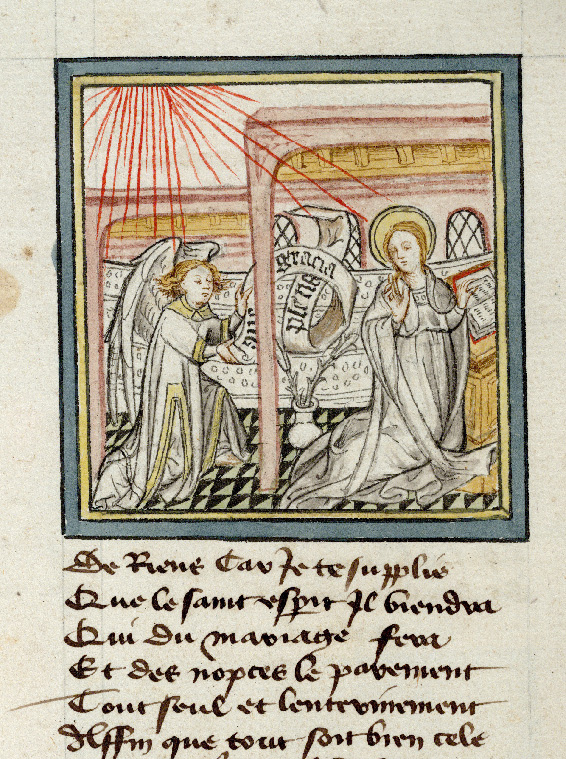 aue
gracia
plena
De Riens Car Je te supplie
Que le saint espir Jl viendra
Qui du mariage fera
Et des nopces le pavement
Tout seul et lenterinement
Affin que tout soit bien cele